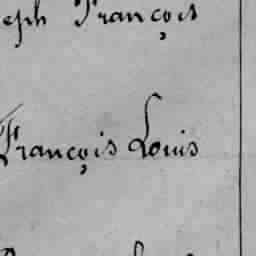 eph François
François Louis